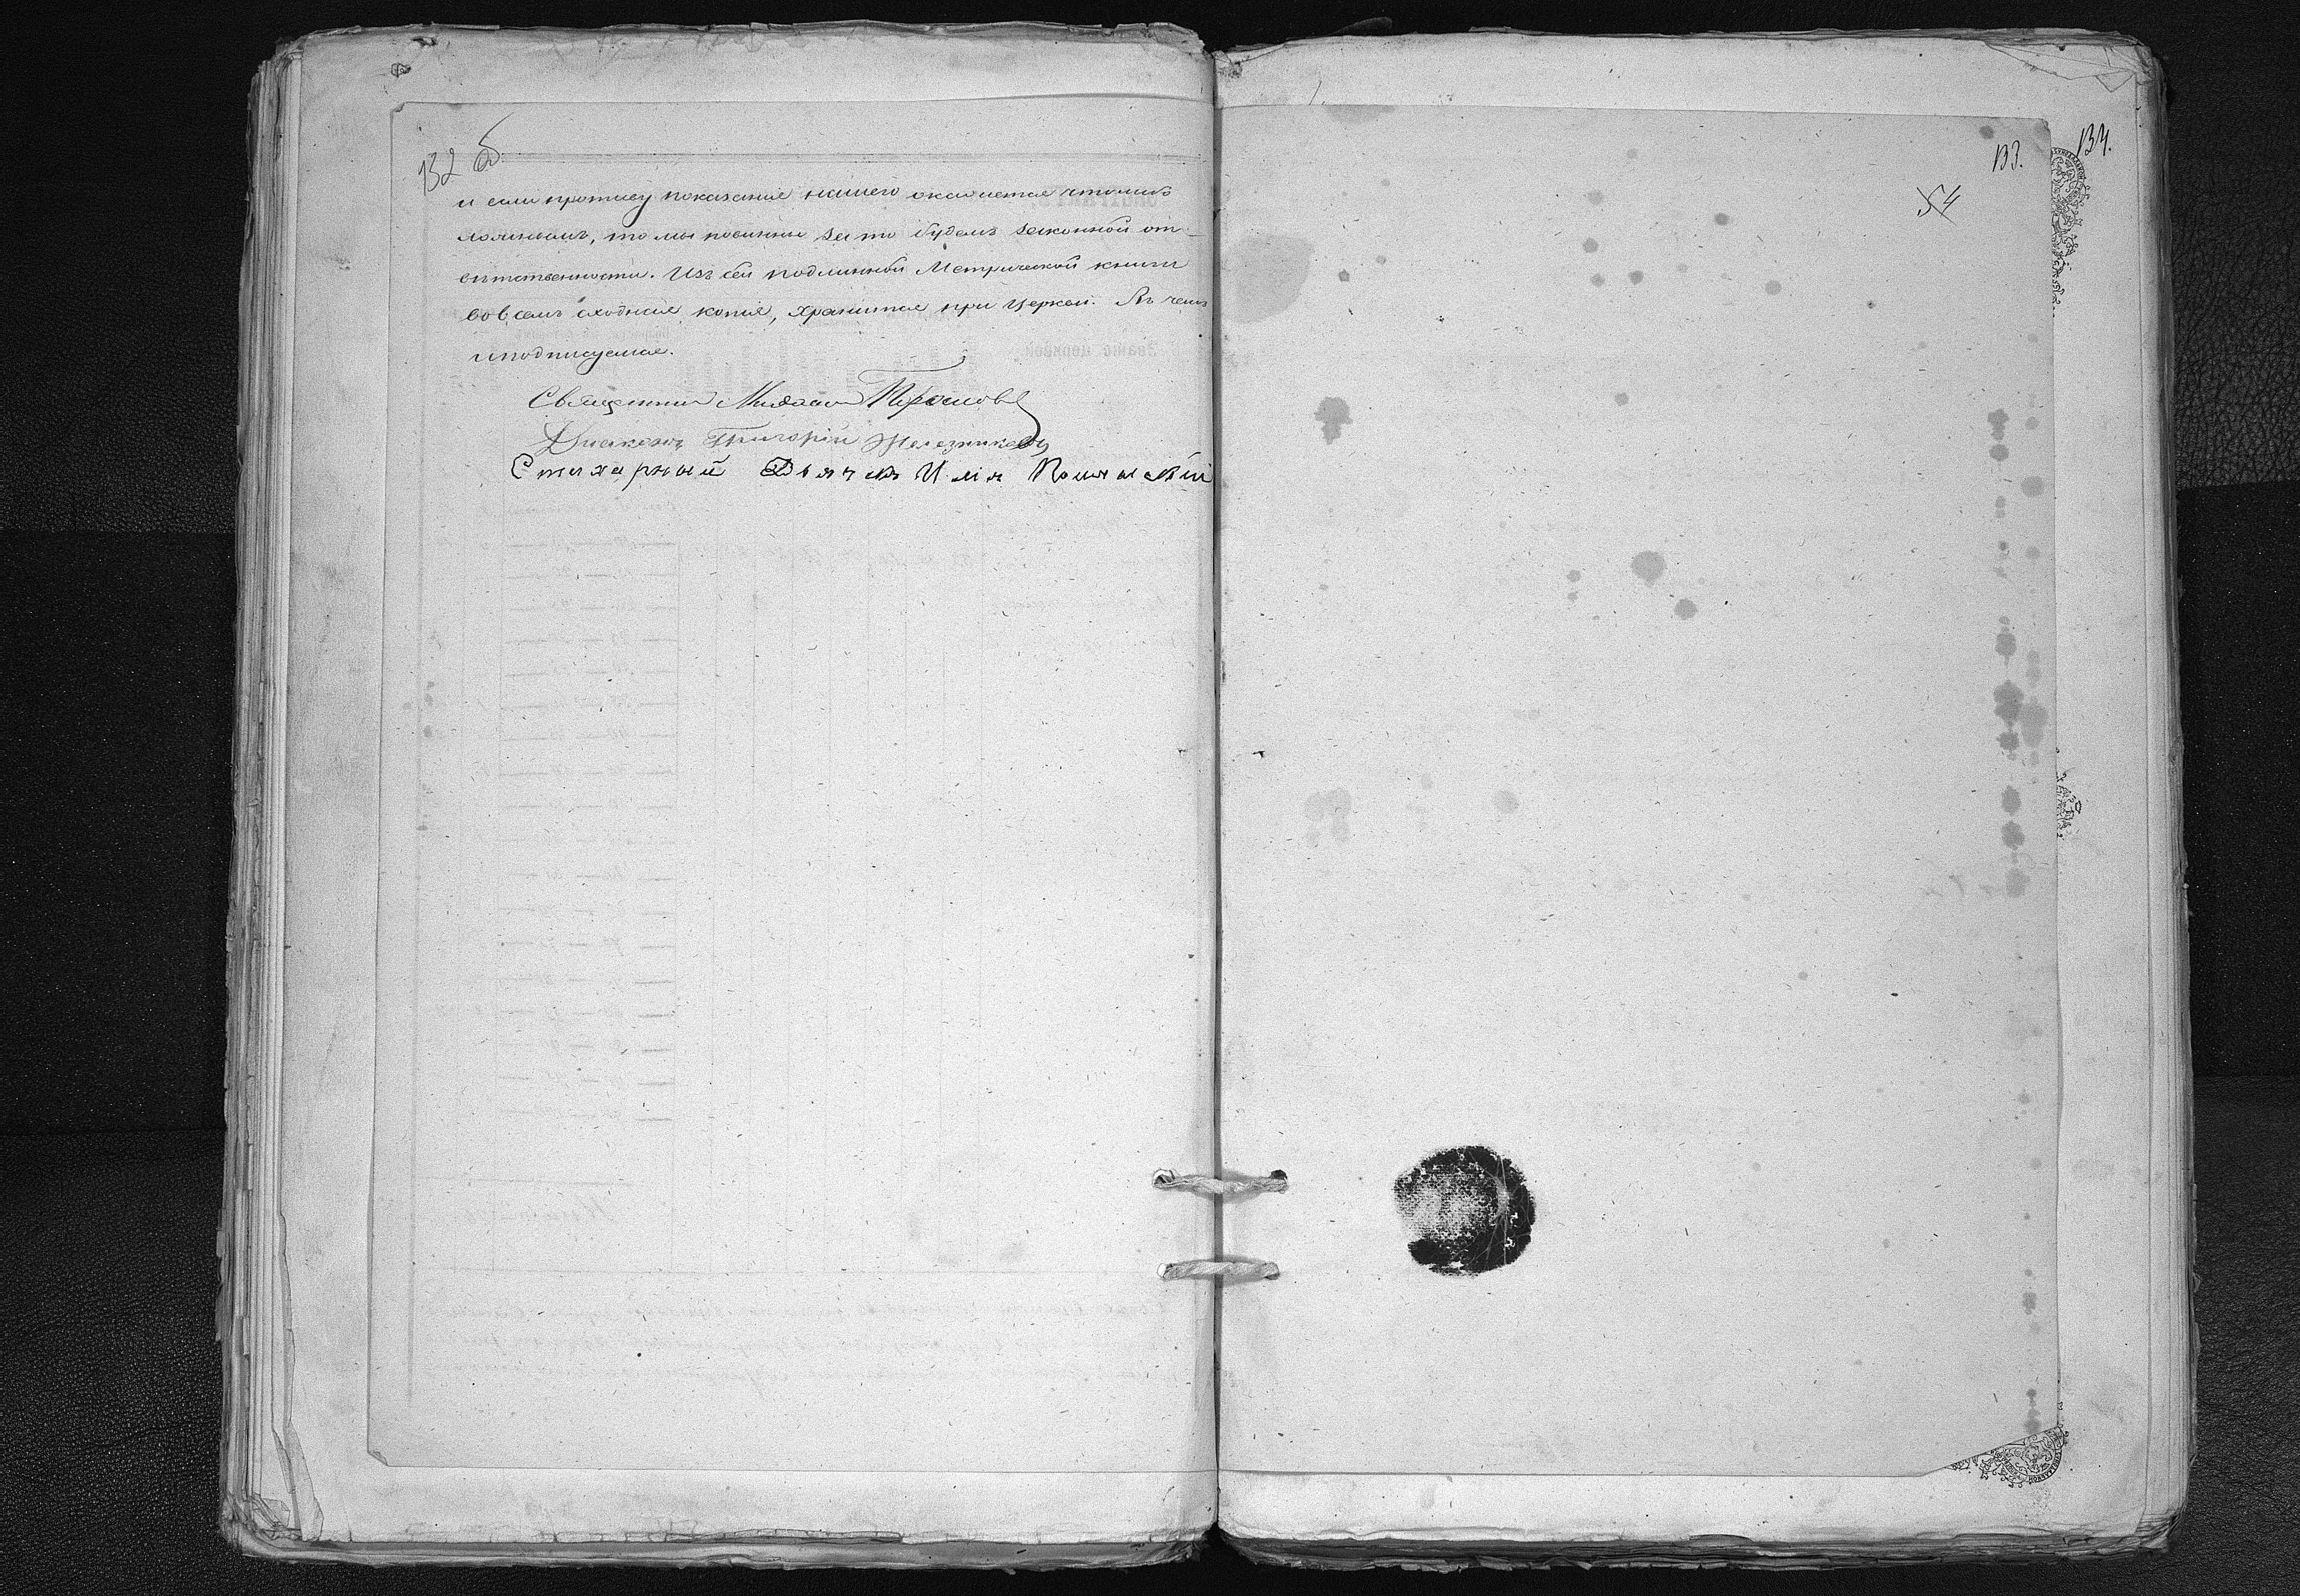 132 об
и если противу показанія нашего окажется что либо
ложнымъ, то мы повинны за то будемъ законной от-
вѣтственности. Изъ сей подлинной Метрической книги
во всемъ сходная копія, хранится при Церкви. Въ чемъ
и подписуемся.
Священникъ Михаилъ
Діаконъ Григорій Железняковъ
Стихарный Дьячекъ Илія
133.
134.
54